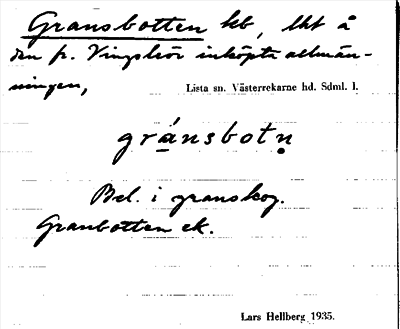 Gransbotten kb, lht å
den fr. Vingsleör inköpta allmän-
ningen,
Lista sn. Västerrekarne hd. Sdml. l.
gránsbotṇ
Bel. i granskog.
Granbotten ek.
Lars Hellberg 1935.